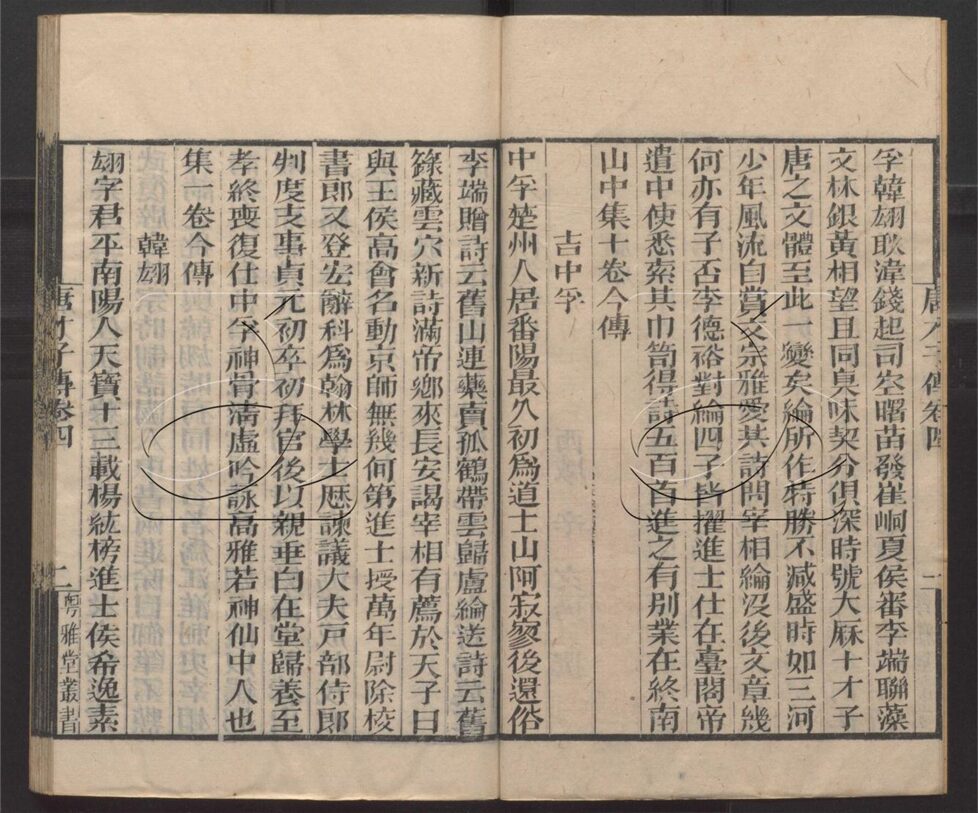 孚韓翃耿湋錢起司空曙苗發崔峒夏侯審李端聯藻
文林銀黃相望且同臭味契分俱深時號大厤十才子
唐之文體至此一變矣綸所作特勝不减盛時如三河
少年風流自賞文宗雅愛其詩問宰相綸沒後文章幾
何亦有子否李德裕對綸四子皆擢進士仕在臺閣帝
遣中使悉索其巾笥得詩五百首進之有别業在終南
山中集十卷今傳
吉中孚
中孚楚州人居番陽最久初爲道士山阿寂寥後還俗
李端贈詩云舊山連藥賣孤鶴帶雲歸盧綸送詩云舊
籙藏雲穴新詩滿帝鄉來長安謁宰相有薦於天子日
與王侯高會名動京師無幾何第進士授萬年尉除校
書郎又登宏辭科爲翰林學士歷諫議大夫戸部侍郎
判度支事貞元初卒初拜官後以親垂白在堂歸養至
孝終喪復仕中孚神骨清虛吟詠高雅若神仙中人也
集一卷今傳
韓翃
翃字君平南陽人天寶十三載楊紘榜進士侯希逸素
唐才子傳卷四
二
粵雅堂叢書